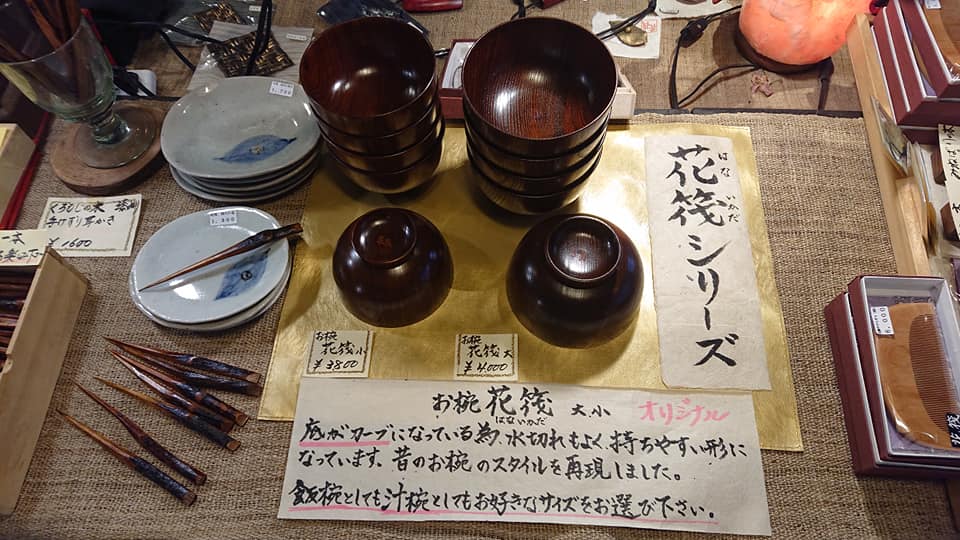 花筏シリーズ
はな
いかだ
お椀
花筏 小
¥3800
お椀
花筏 大
¥4,000
お椀 花筏 大小 オリジナル
はないかだ
底がカーブになっている為、水切れもよく持ちやすい形に
なっています、昔のお椀のスタイルを再現しました。
飯椀としても汁椀としてもお好きなサイズをお選び下さい。
¥1600